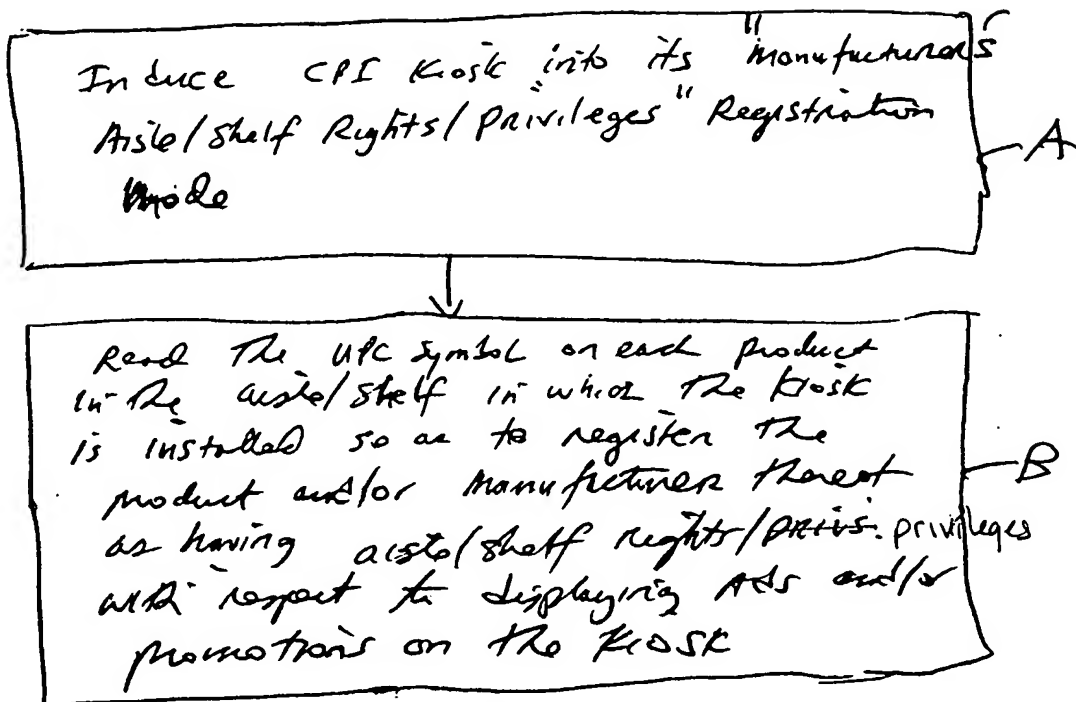 Induce CPI Kiosk into its "Manufacturer's
Aisle/Shelf Rights/Privileges" Registration
Mode
A
Read The UPC Symbol on each product
in the aisle/shelf in which the Kiosk
is installed so as to register the
product and/or Manufacturer thereof
as having aisle/shelf rights/privs. privileges
with respect to displaying Ads and/or
promotions on the Kiosk
B